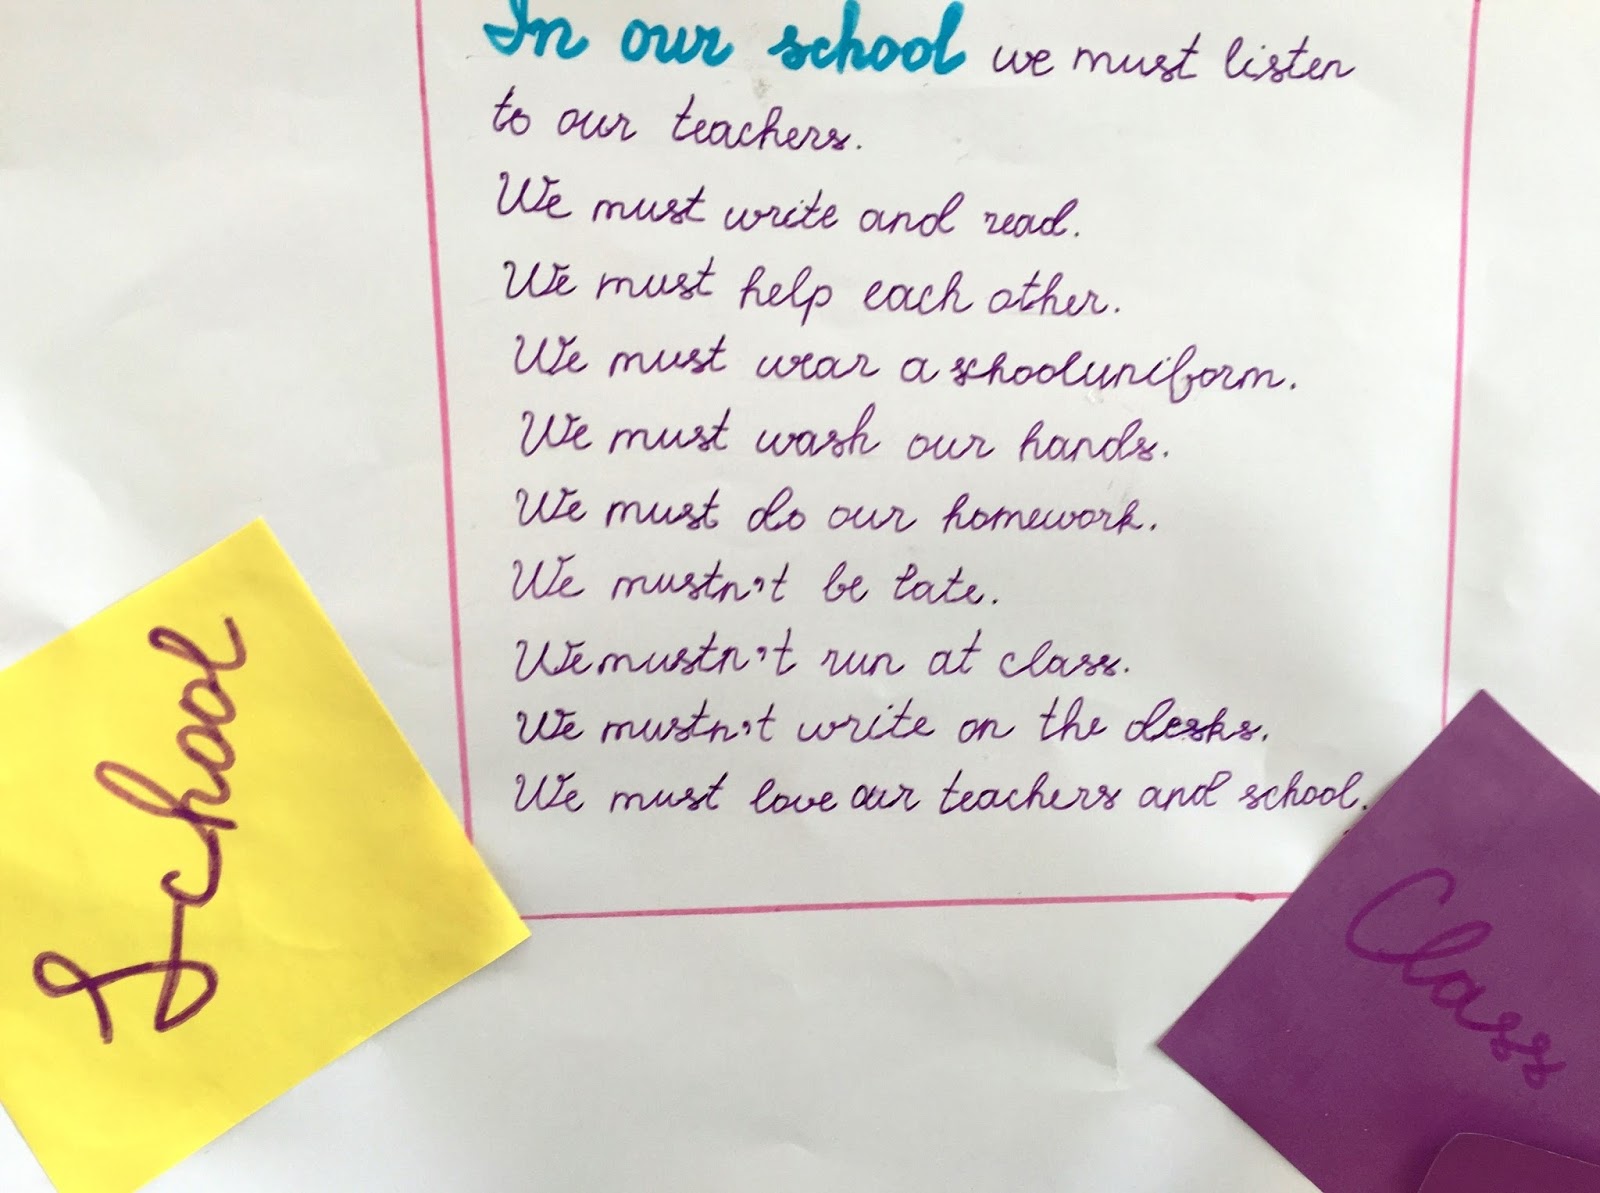 In our school we must listen
to our teachers.
We must write and read.
We must help each other.
We must wear a schooluniform.
We must wash our hands.
We must do our homework.
We mustn't be late.
We mustn't run at class.
We mustn't write on the desks.
We must love our teachers and school.
School
Class